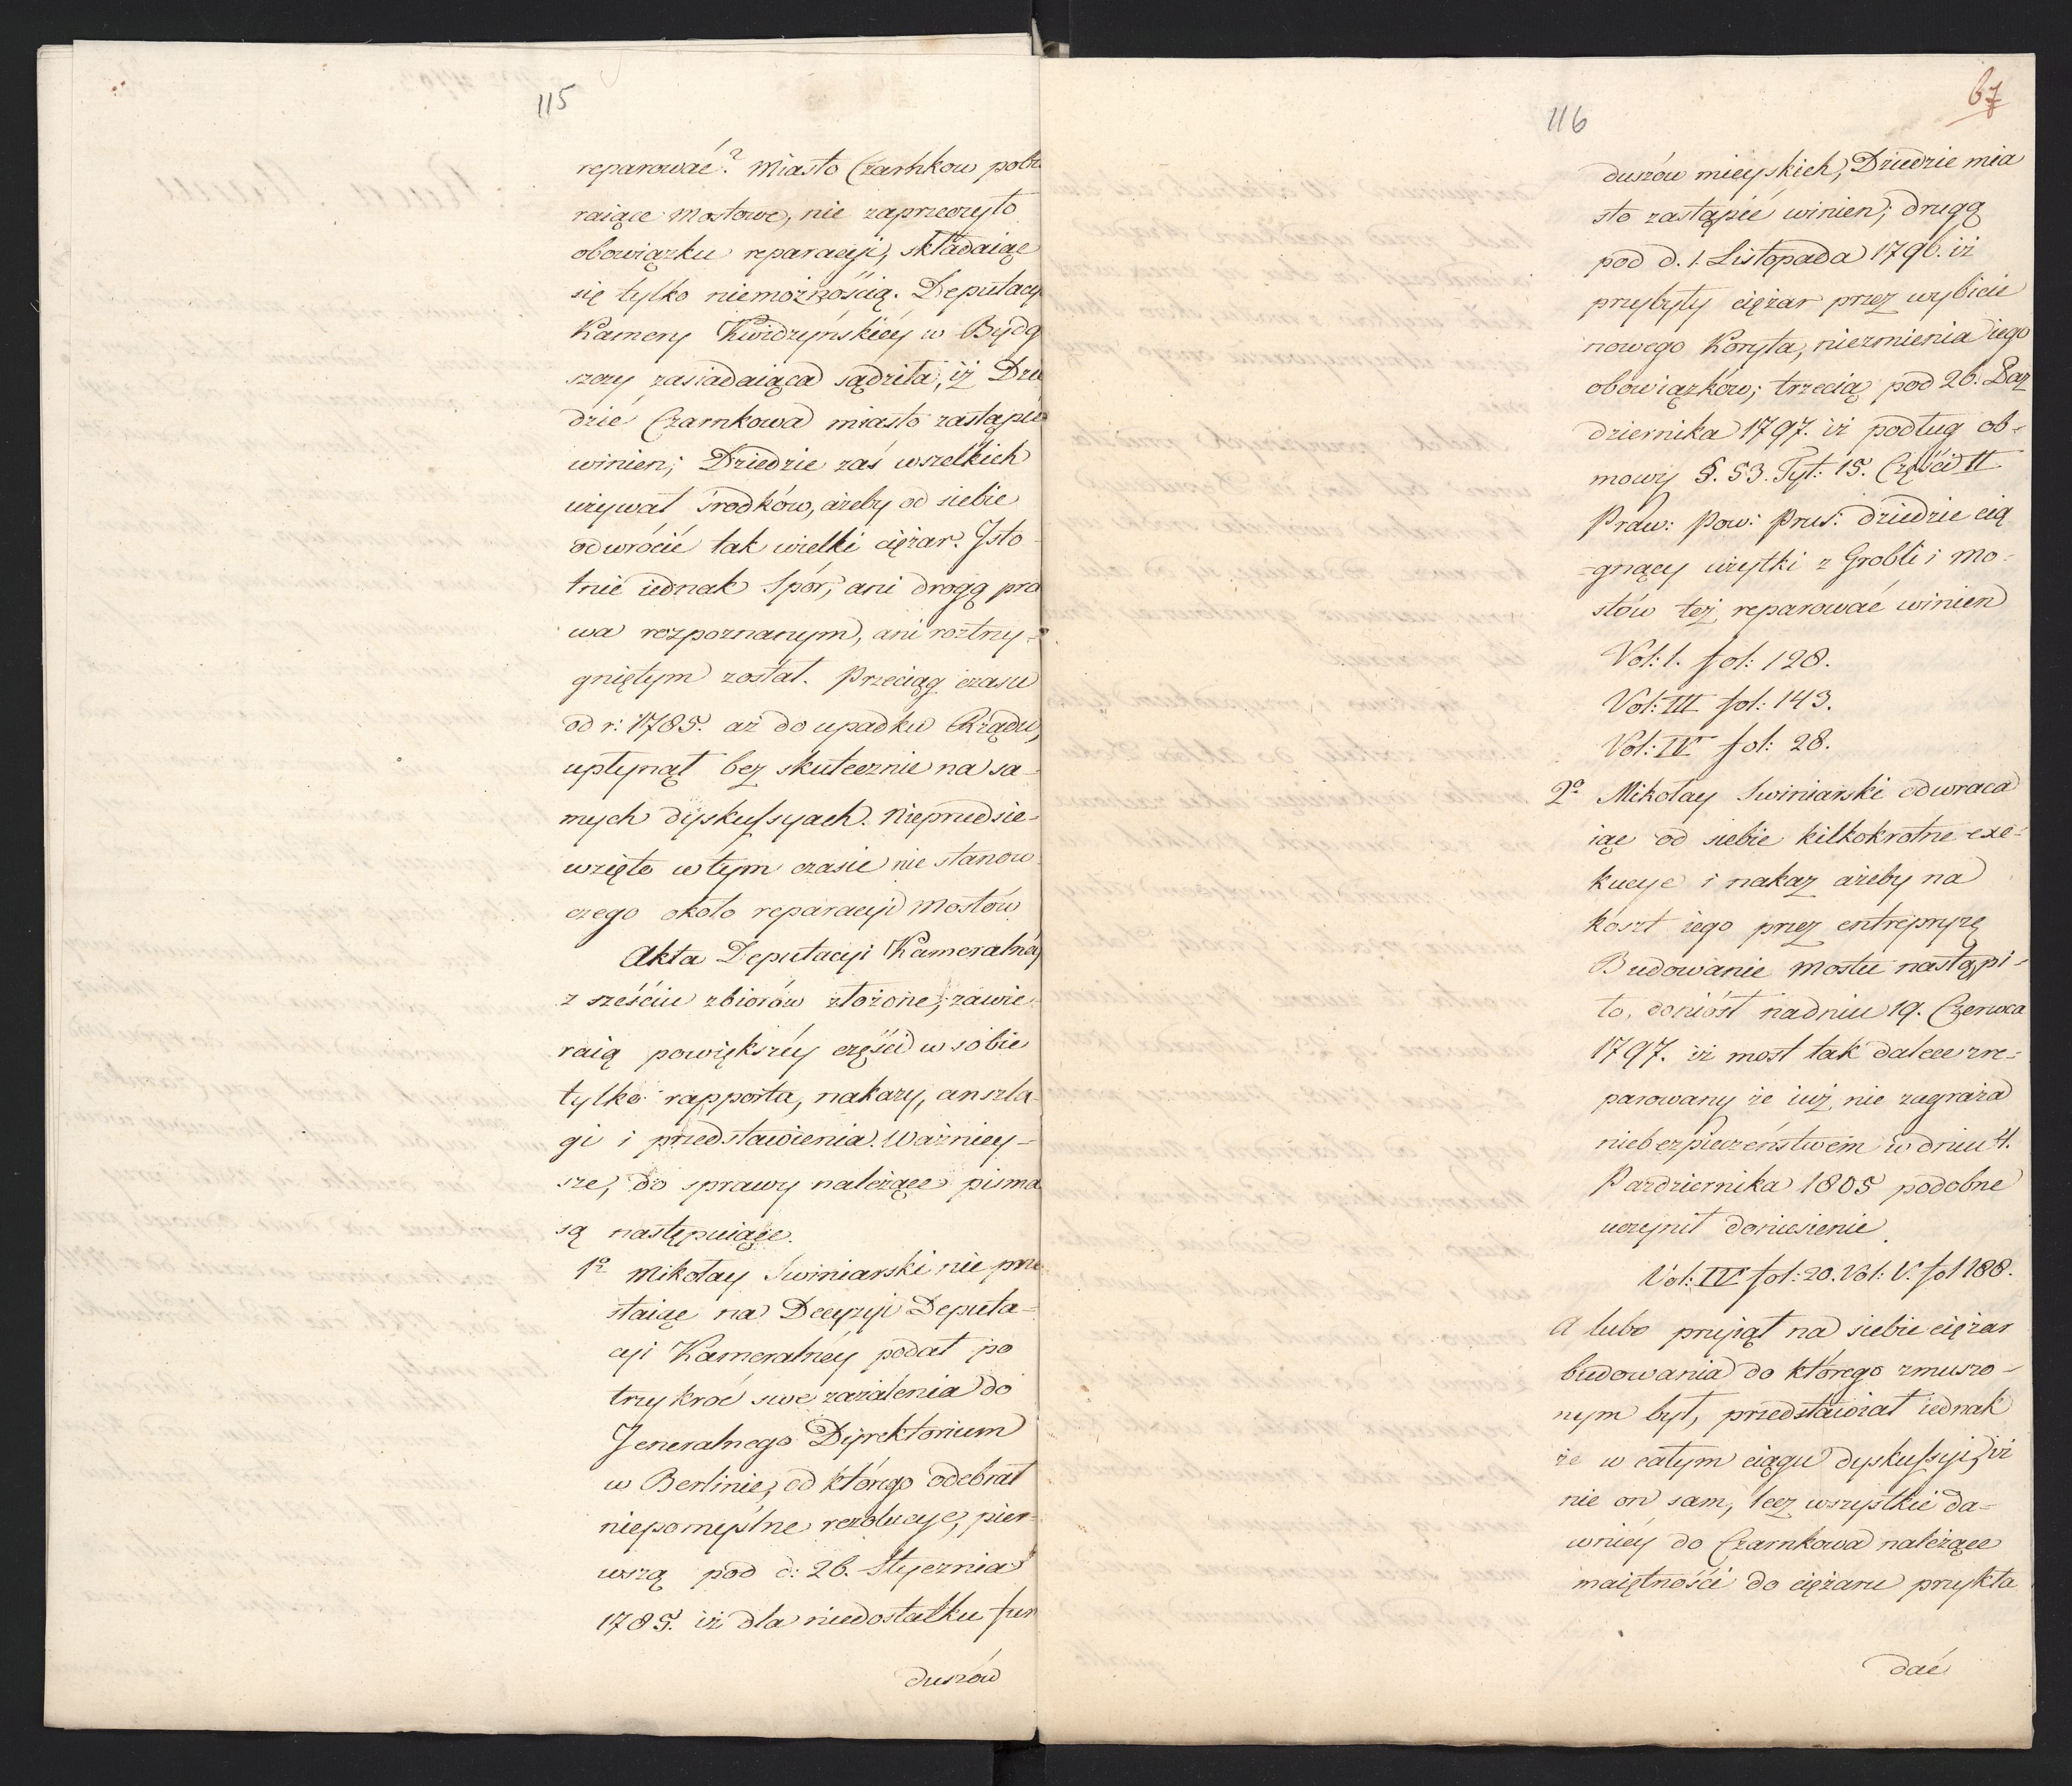 115
reparować? Miasto Czarnkow pobie
raiące mostowe, nie zaprzeczyło
obowiązku reparacyi, składaiąc
się tylko niemożnością. Deputacya
Kamery Kwidzyńskiéy w Bydg
szczy zasiadaiąca sądziła, iż Dzie
dzic Czarnkowa miasto zastąpić
winien; Dziedzic zaś wszelkich
używał środków, ażeby od siebie
odwrócić tak wielki ciężar. Isto
tnie iednak Spór, ani drogą pra
wa rozpoznanym, ani roztrzy-
gniętym został. Przeciąg czasu
od r: 1785. aż do upadku Rządu,
upłynął bez skutecznie na sa-
mych dyskussyach. Nieprzedsie-
wzięto w tym czasie nic stanow
czego około reparacyi mostów
Akta Deputacyi Kameralnéy
z sześciu zbiorów złożone, zawie
raią powiększéy części w sobie
tylko rapporta, nakazy, anszla-
gi i przedstawienia. Ważniey-
sze, do sprawy należące pisma
są następuiące.
1o Mikołay Swiniarski nie prze
staiąc na Decyzyi Deputa-
cyi Kameralnéy podał po
trzykroć swe zażalenia do
Jeneralnego Dyrektorium
w Berlinie, od którego odebrał
niepomyślne rezolucye, pier-
wszą pod d: 26. Stycznia
1785. iż dla niedostatku fun
duszów
116
67
duszów mieyskich, Dziedzic mia
sto zastąpić winien; drugą
pod d. 1. Listopada 1796. iż
przybyły ciężar przez wybicie
nowego Koryta, niezmienia iego
obowiązków; trzecią pod 26. Paź
dziernika 1797. iż podług ob-
mowy §. 53. Tyt: 15. Części II
Praw: Pow: Prus: dziedzic cią
-gnący użytki z Grobli i Mo-
stów też reparować winien
Vol: I. fol: 128.
Vol: III fol: 143.
Vol: IV fol: 28.
2o Mikołay Swiniarski odwraca
iąc od siebie kilkokrotne exe-
kucye i nakaz ażeby na
koszt iego przez entrepryzę
Budowanie mostu nastąpi-
ło, doniósł na dniu 19. Czerwca
1797. iż most tak dalece zre-
parowany że iuż nie zagraża
niebezpieczeństwem w dniu 4.
Pazdziernika 1805 podobne
uczynił doniesienie.
Vol: IV fol: 20. Vol: V. fol 188.
A lubo przyiął na siebie ciężar
budowania do którego zmuszo-
nym był, przedstawiał iednak
że w całym ciągu dyskussyi, iż
nie on sam, lecz wszystkie da-
wniéy do Czarnkowa należące
maiętności do ciężaru przykła
dać